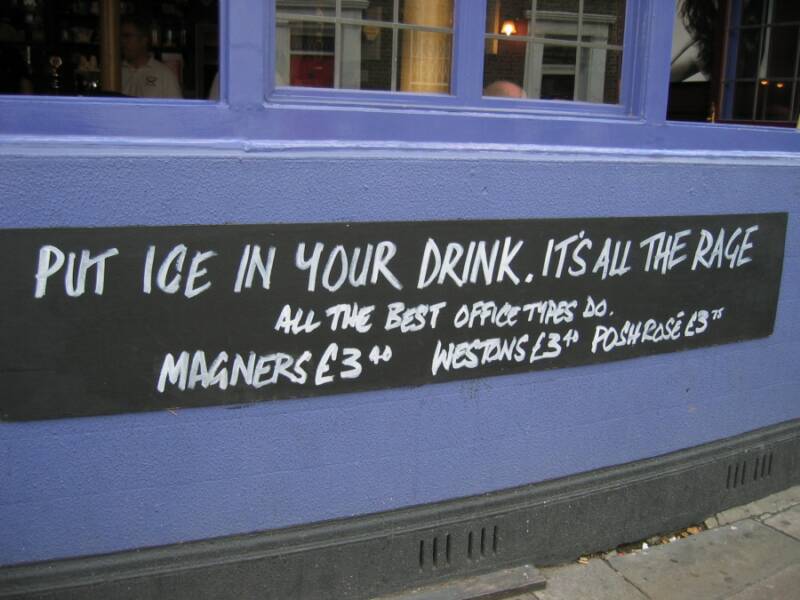 PUT ICE IN YOUR DRINK. IT'S ALL THE RAGE
ALL THE BEST OFFICE TYPES DO.
MAGNERS £3 40 WESTONS £3 40 POSH ROSÉ £3 75